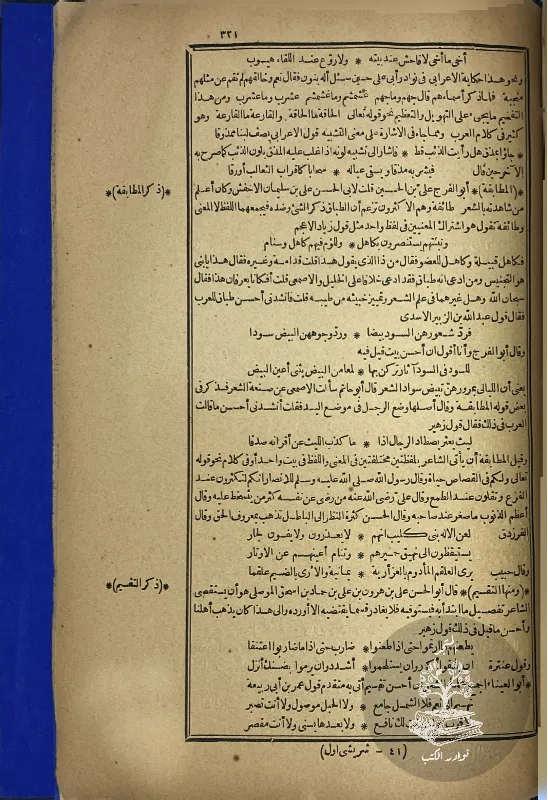 ٣٢١
أخي ما أخي لا فاحش عند بيته * ولا ورع عند اللقاء هيوب
ونحو هذا حكاية الاعرابي في نوادر أبي علي حين سئل أله بنون فقال نعم وخالقهم لم تقم عن مثلهم
منجبة فلما ذكر أسماءهم قال جهم وما جهم غشمشم وما غشمشم عشرب وما عشرب ومن هذا
التفخيم ما يجيء على التهويل والتعظيم نحو قوله تعالى الحاقة ما الحاقة والقارعة ما القارعة وهو
كثير في كلام العرب ومما جاء في الاشارة على معنى التشبيه قول الاعرابي يصف لبنا ممذوقا
* جاؤا بمذق هل رأيت الذئب قط * فأشار الى تشبيه لونه اذا غلب عليه المذق بلون الذئب كما صرح به
الآخر حين قال فيشربه مذقا ويسقي عياله * سجاجا كأقراب الثعالب أورقا
*(المطابقة)* أبو الفرج علي بن الحسين قلت لابي الحسن علي بن سليمان الاخفش وكان أعلم
*(ذكر المطابقة)*
من شاهدته بالشعر طائفة وهم الاكثرون تزعم أن الطباق ذكر الشئ وضده فيجمعهما اللفظ لا المعنى
وطائفة تقول هو اشتراك المعنيين في لفظ واحد مثل قول زياد الاعجم
ونبئتهم يستنصرون بكاهل * وللؤم فيهم كاهل وسنام
فكاهل قبيلة وكاهل للعضو فقال من ذا الذي يقول هذا قلت قدامة وغيره فقال هذا يا بني
هو التجنيس ومن ادعى انه طباق فقد ادعى خلافا على الخليل والاصمعي قلت أفكانا يعرفان هذا فقال
سبحان الله وهل غيرهما في علم الشعر وتمييز خبيثه من طيبه قلت فأنشدني أحسن طباق للعرب
فقال قول عبد الله بن الزبير الاسدي
فرد شعورهن السود بيضا * ورد وجوههن البيض سودا
وقال أبو الفرج وأنا أقول ان أحسن بيت قيل فيه
للسود في السود آثار تركن بها * لمعا من البيض يثني أعين البيض
يعني أن الليالي بمرورهن تبيض سواد الشعر قال أبو حاتم سألت الاصمعي عن صنعة الشعر فذكر في
بعض قوله المطابقة وقال أصلها وضع الرجل في موضع اليد فقلت أنشدني أحسن ما قالت
العرب في ذلك فقال قول زهير
ليث بعثر يصطاد الرجال اذا * ما كذب الليث عن أقرانه صدقا
وقيل المطابقة أن يأتي الشاعر بلفظتين مختلفتين في المعنى واللفظ في بيت واحد أو في كلام نحو قوله
تعالى ولكم في القصاص حياة وقال رسول الله صلى الله عليه وسلم للانصار انكم لتكثرون عند
الفزع وتقلون عند الطمع وقال علي رضي الله عنه من رضي عن نفسه كثر من يتسخط عليه وقال
أعظم الذنوب ما صغر عند صاحبه وقال الحسن كثرة النظر الى الباطل تذهب بمعرفة الحق وقال
الفرزدق لعن الاله بني كليب انهم * لا يغدرون ولا يفون لجار
يستيقظون الى نهيق حميرهم * وتنام أعينهم عن الاوتار
وقال حبيب يرى العلقم المأدوم بالعز أرية * يمانية والاري بالضيم علقما
*(ومنها التقسيم)* قال أبو الحسن علي بن هرون بن علي بن حماد بن اسحق الموصلي هو أن يستقصي
*(ذكر التقسيم)*
الشاعر تفصيل ما ابتدأ به فيستوفيه فلا يغادر قسما يقتضيه الا أورده والى هذا كان يذهب أهلنا
وأحسن ما قيل في ذلك قول زهير
يطعنهم ما ارتموا حتى اذا طعنوا * ضارب حتى اذا ما ضاربوا اعتنقا
وقول عنترة ان يلحقوا أكرر وان يستلحموا * أشدد وان يرموا بضنك أنزل
*أبو العيناء أحسن تقسيم أتى به متقدم قول عمر بن أبي ربيعة
تهيم الى نعم فلا الشمل جامع * ولا الحبل موصول ولا أنت تصبر
ولا قرب نافع * ولا بعدها يسني ولا أنت مقصر
(٤١ - شريشى اول)
نوادر الكتب